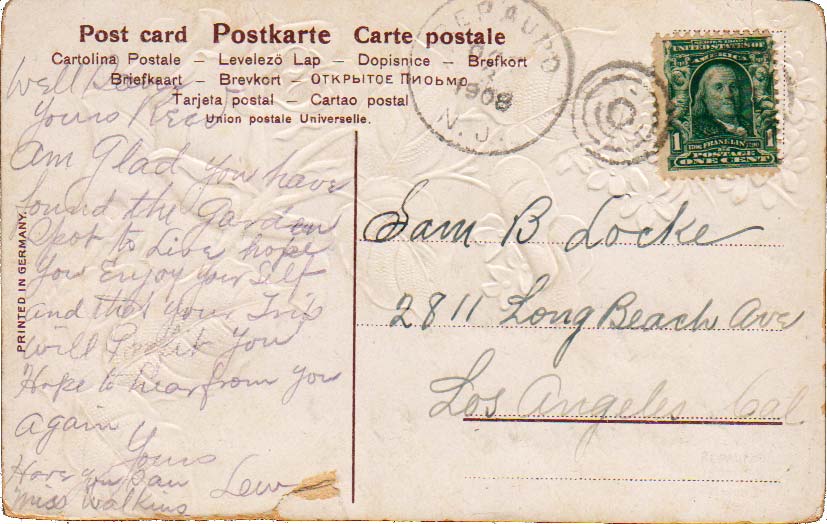 Post card Postkarte Carte postale
Cartolina Postale – Levelező Lap – Dopisnice – Brefkort
Briefkaart – Brevkort – ОТКРЫТОЕ ПИСЬМО
Tarjeta postal – Cartao postal
Union postale Universelle.
REPAUPO
1908
N.J.
SERIES 1902
UNITED STATES OF
AMERICA
1 1
1706 FRANKLIN 1790
POSTAGE
ONE CENT
PRINTED IN GERMANY.
Well
Yours Rec
am Glad you have
found the Garden
Spot to Live hope
You Enjoy your Self
and that your Trip
will Profit You
Hope to hear from you
again
Yours
Lew
Have you saw
Miss Watkins
Sam B Locke
2811 Long Beach Ave
Los Angeles Cal